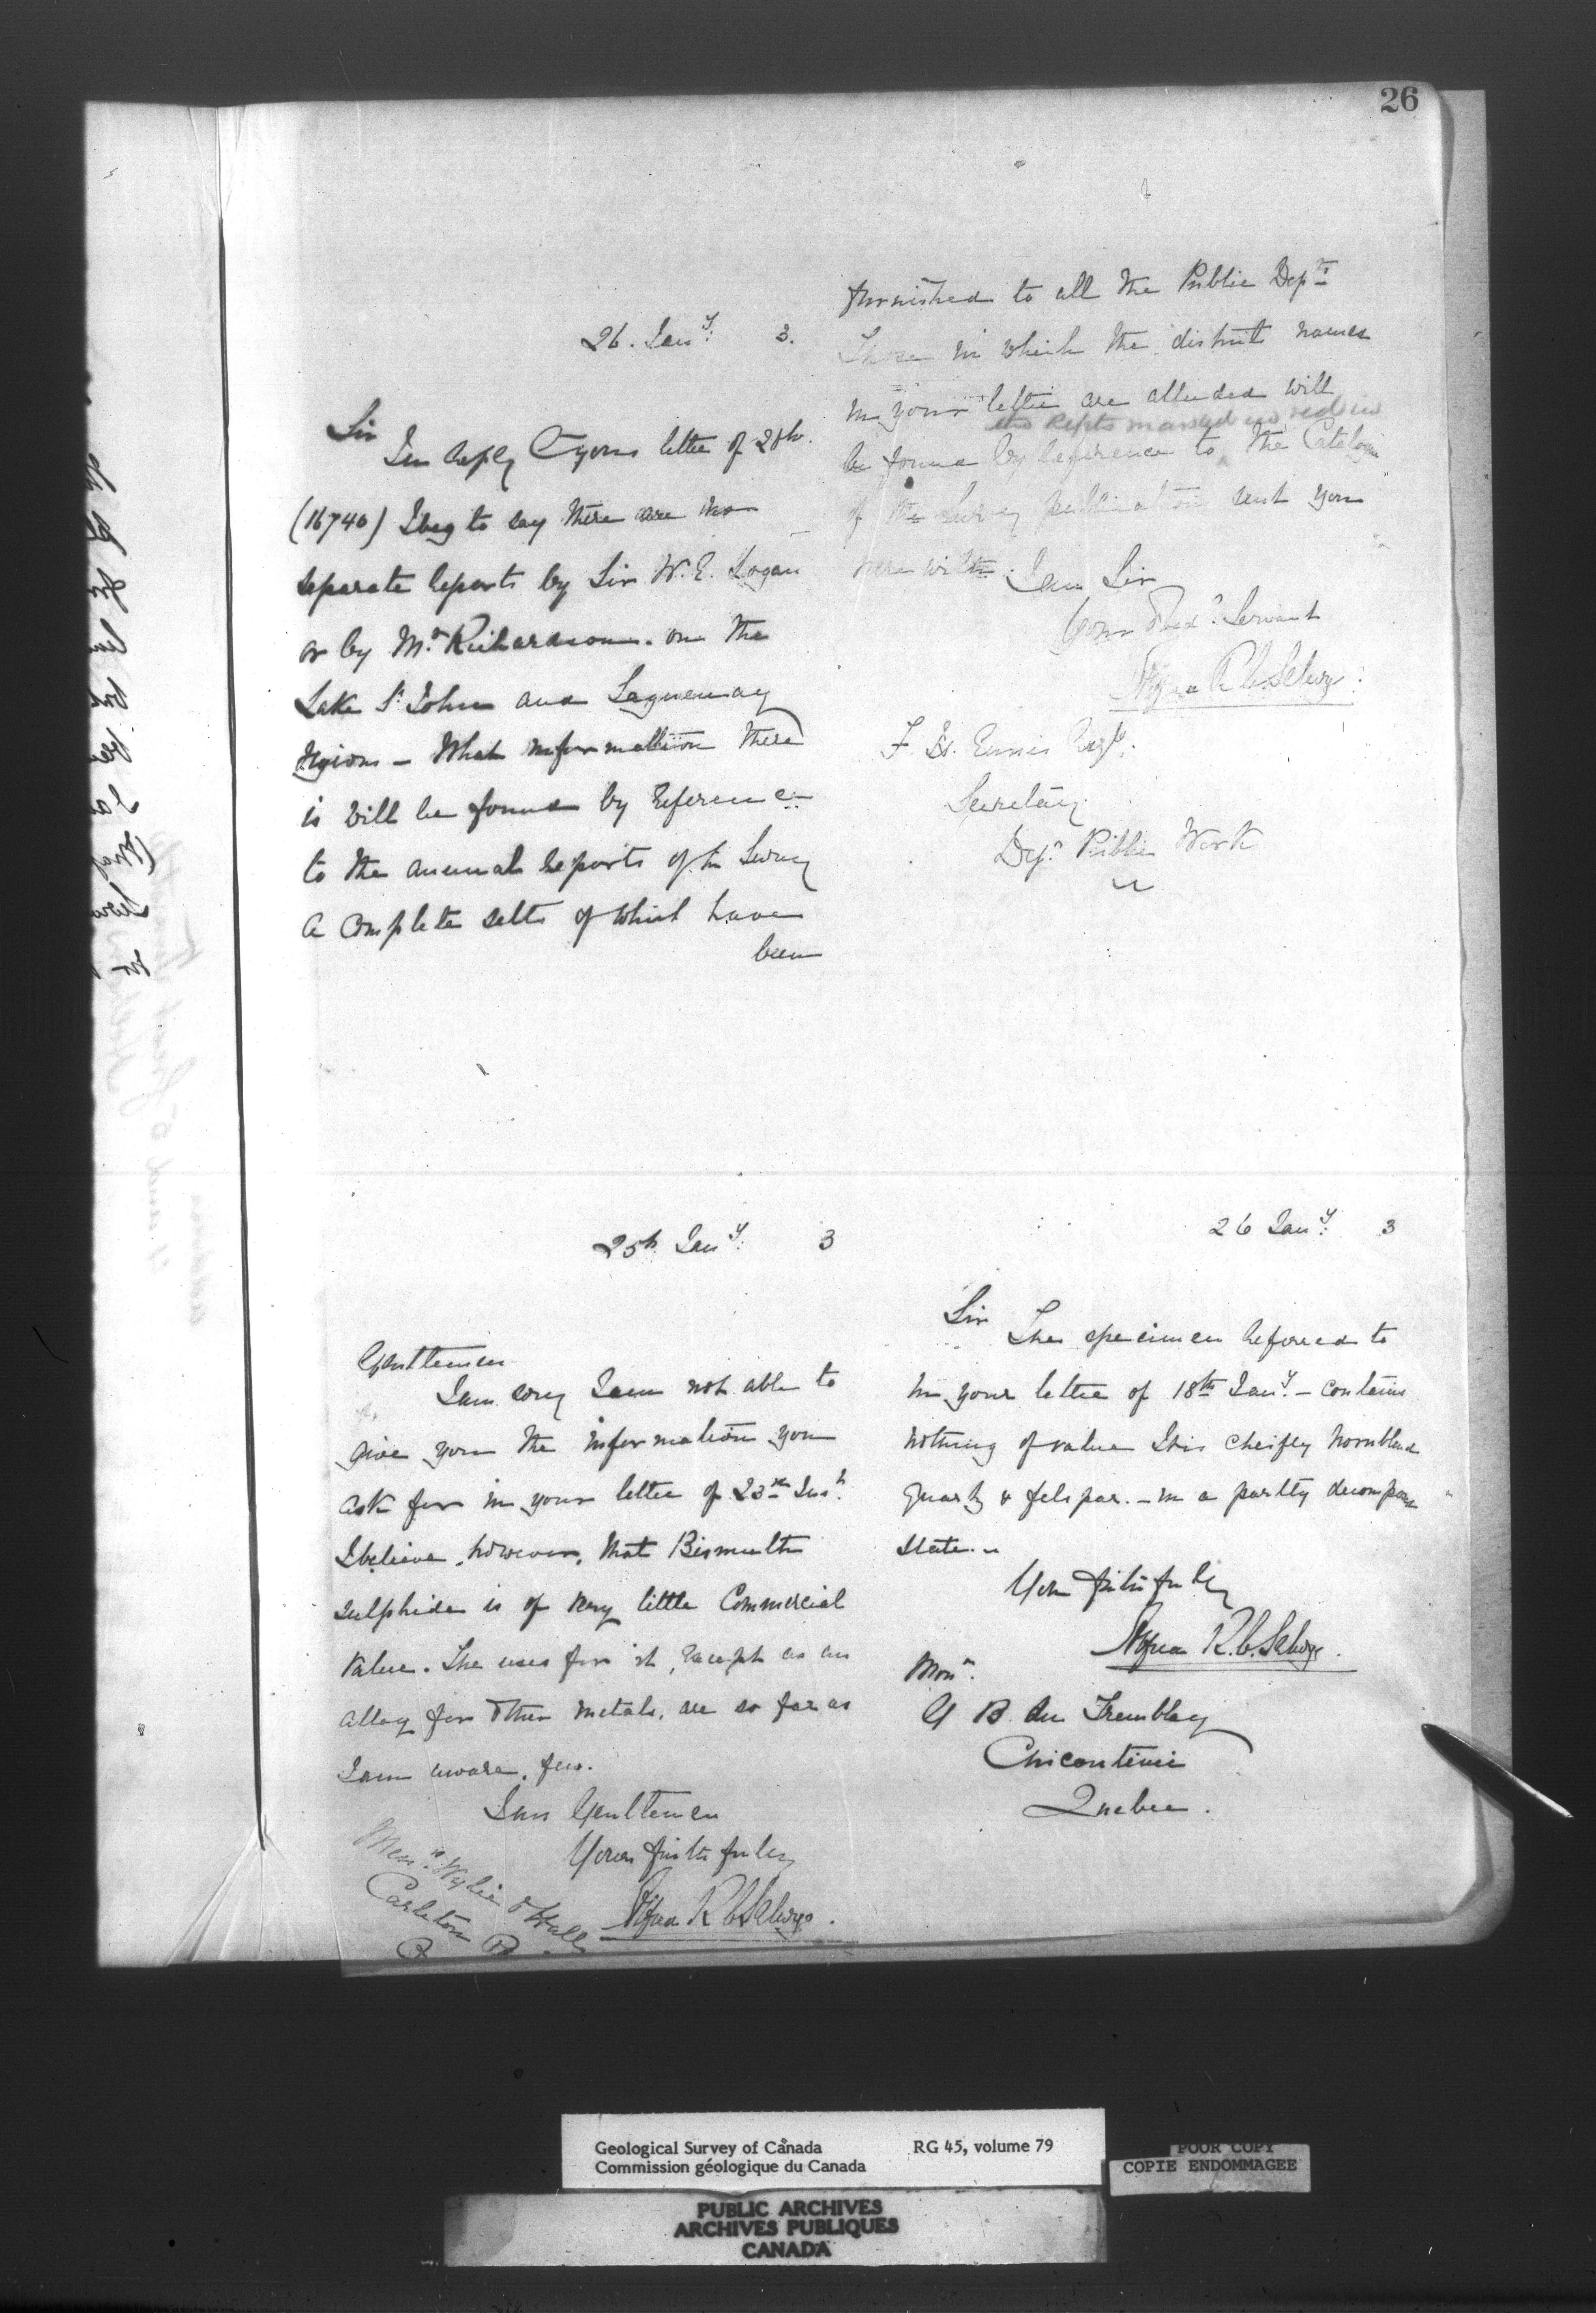 26
26. Jany. 3.
Sir
In reply to your letter of
(16740) I beg to say there are no
separate Reports by Sir W. E. Logan
or by Mr. Richardson. on the
Lake St. John and Saguenay
Regions — What information there
is will be found by Reference
to the annual Reports of the Survey
a complete setts of which have
been
furnished to all the Public Depts
Those in which the district names
in your letter are alluded will
the Repts marked in red in
be found by Reference to the Catalogue
of the Survey publications sent you
here with. I am Sir
Your Obedt. Servant
Alfred R. C. Selwyn
F. H. Ennis Esqr.
Secretary
Dept. Public Works
25th Jany. 3
Gentlemen
I am sorry I am not able to
give you the information you
ask for in your letter of 23rd Inst.
I believe, however, that Bismuth
sulphide is of very little Commercial
value. The uses for it, except as an
alloy for other metals, are so far as
I am aware, few.
I am Gentlemen
Yours faithfully
Alfred R C Selwyn.
Messrs. Wylie & Hall
Carleton
26 Jany. 3
Sir
The specimen Referred to
in your letter of 18th Jany. — contains
nothing of value It is cheifly hornblend
quartz & felspar. — in a partly decomposed
state. —
Yours faithfully
Alfred R. C. Selwyn.
Monr.
B. du Tremblay
Chicoutimi
Quebec.
Geological Survey of Canada RG 45, volume 79
Commission géologique du Canada
POOR COPY
COPIE ENDOMMAGEE
PUBLIC ARCHIVES
ARCHIVES PUBLIQUES
CANADA